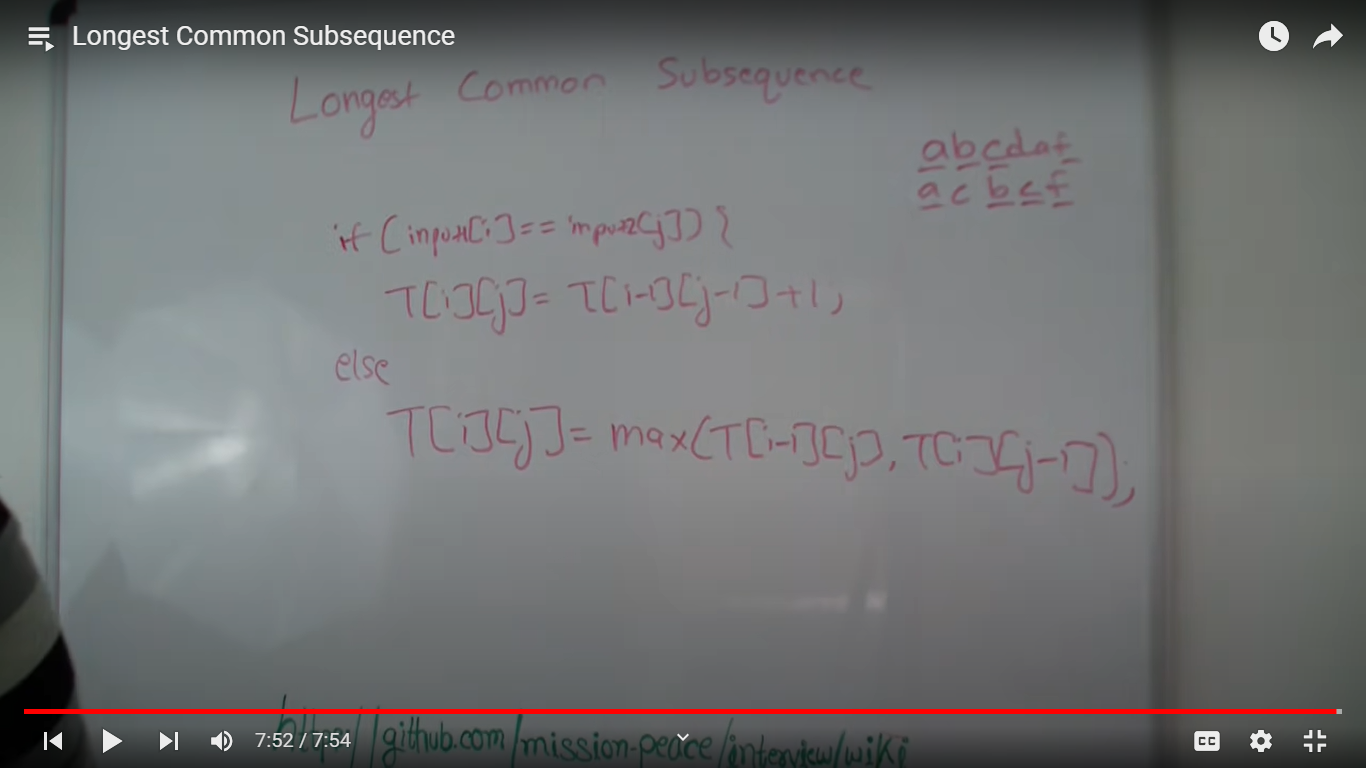 Longest Common Subsequence
Longest Common Subsequence
abcdaf
acbcf
if (input1[i]==input2[j]) {
T[i][j]= T[i-1][j-1]+1;
else
T[i][j]= max(T[i-1][j], T[i][j-1]);
http://github.com/mission-peace/interview/wiki
7:52 / 7:54
CC